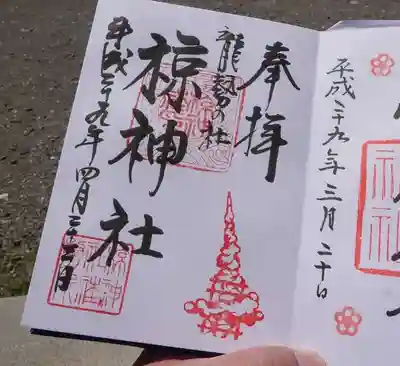 平成二十九年三月二十日
奉拝
龍勢の社
椋神社
平成二十九年四月